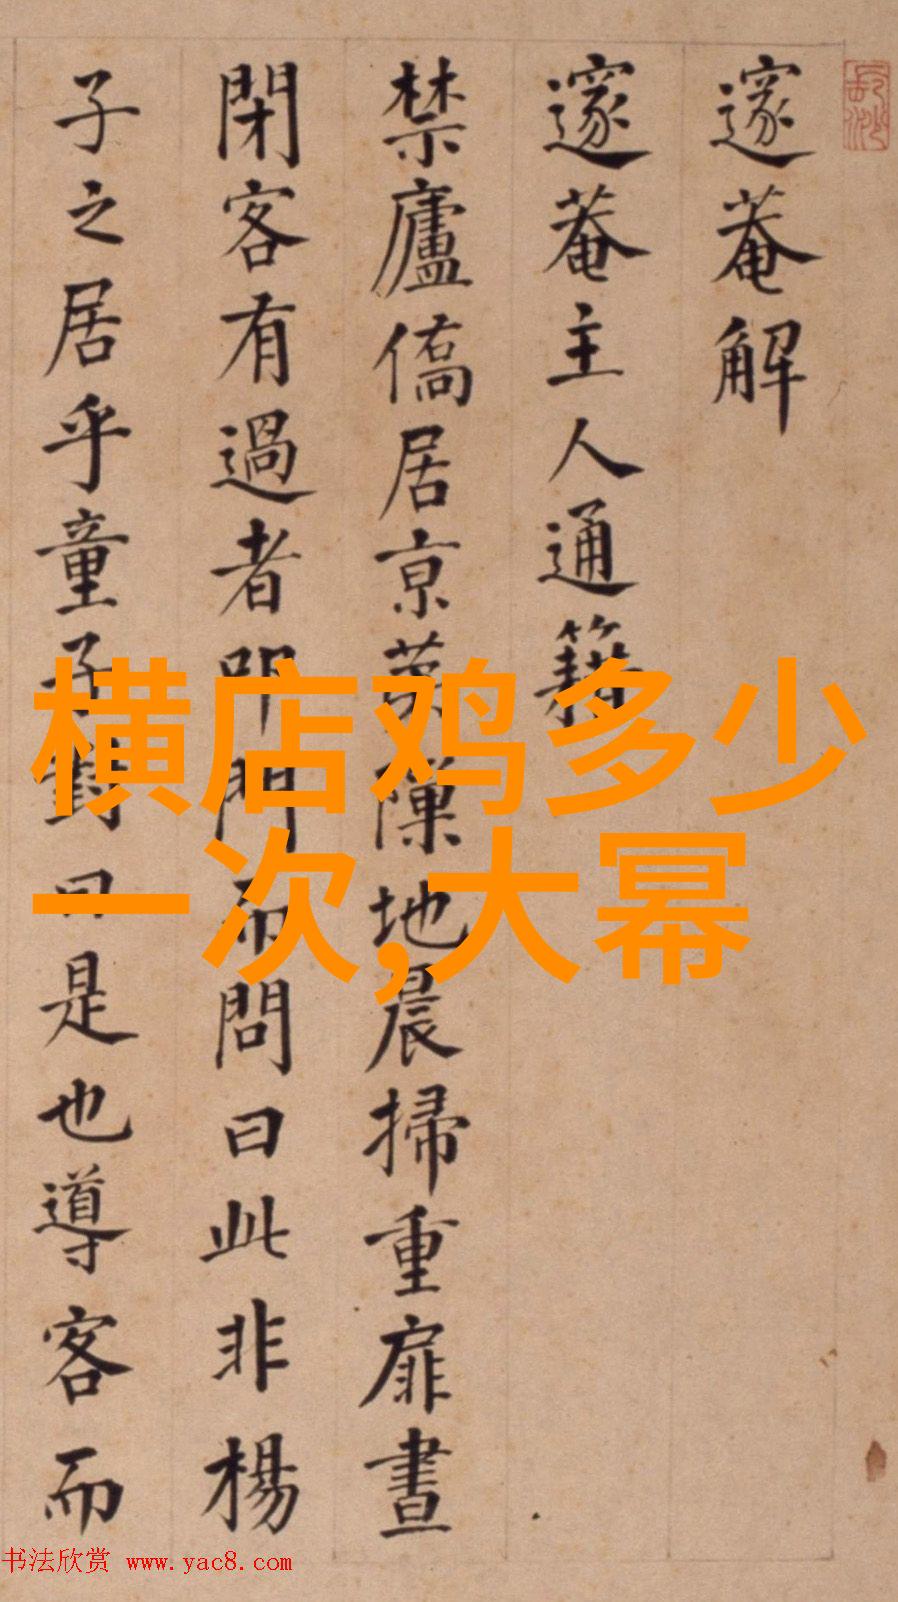 邃菴解
邃菴主人通籍
禁廬僑居京
地晨掃重扉晝
閉客有過者叩門而問曰此非楊
子之居乎童子對曰是也導客而
横店鸡多少
一次,大幂
书法欣赏 www.yac8.com